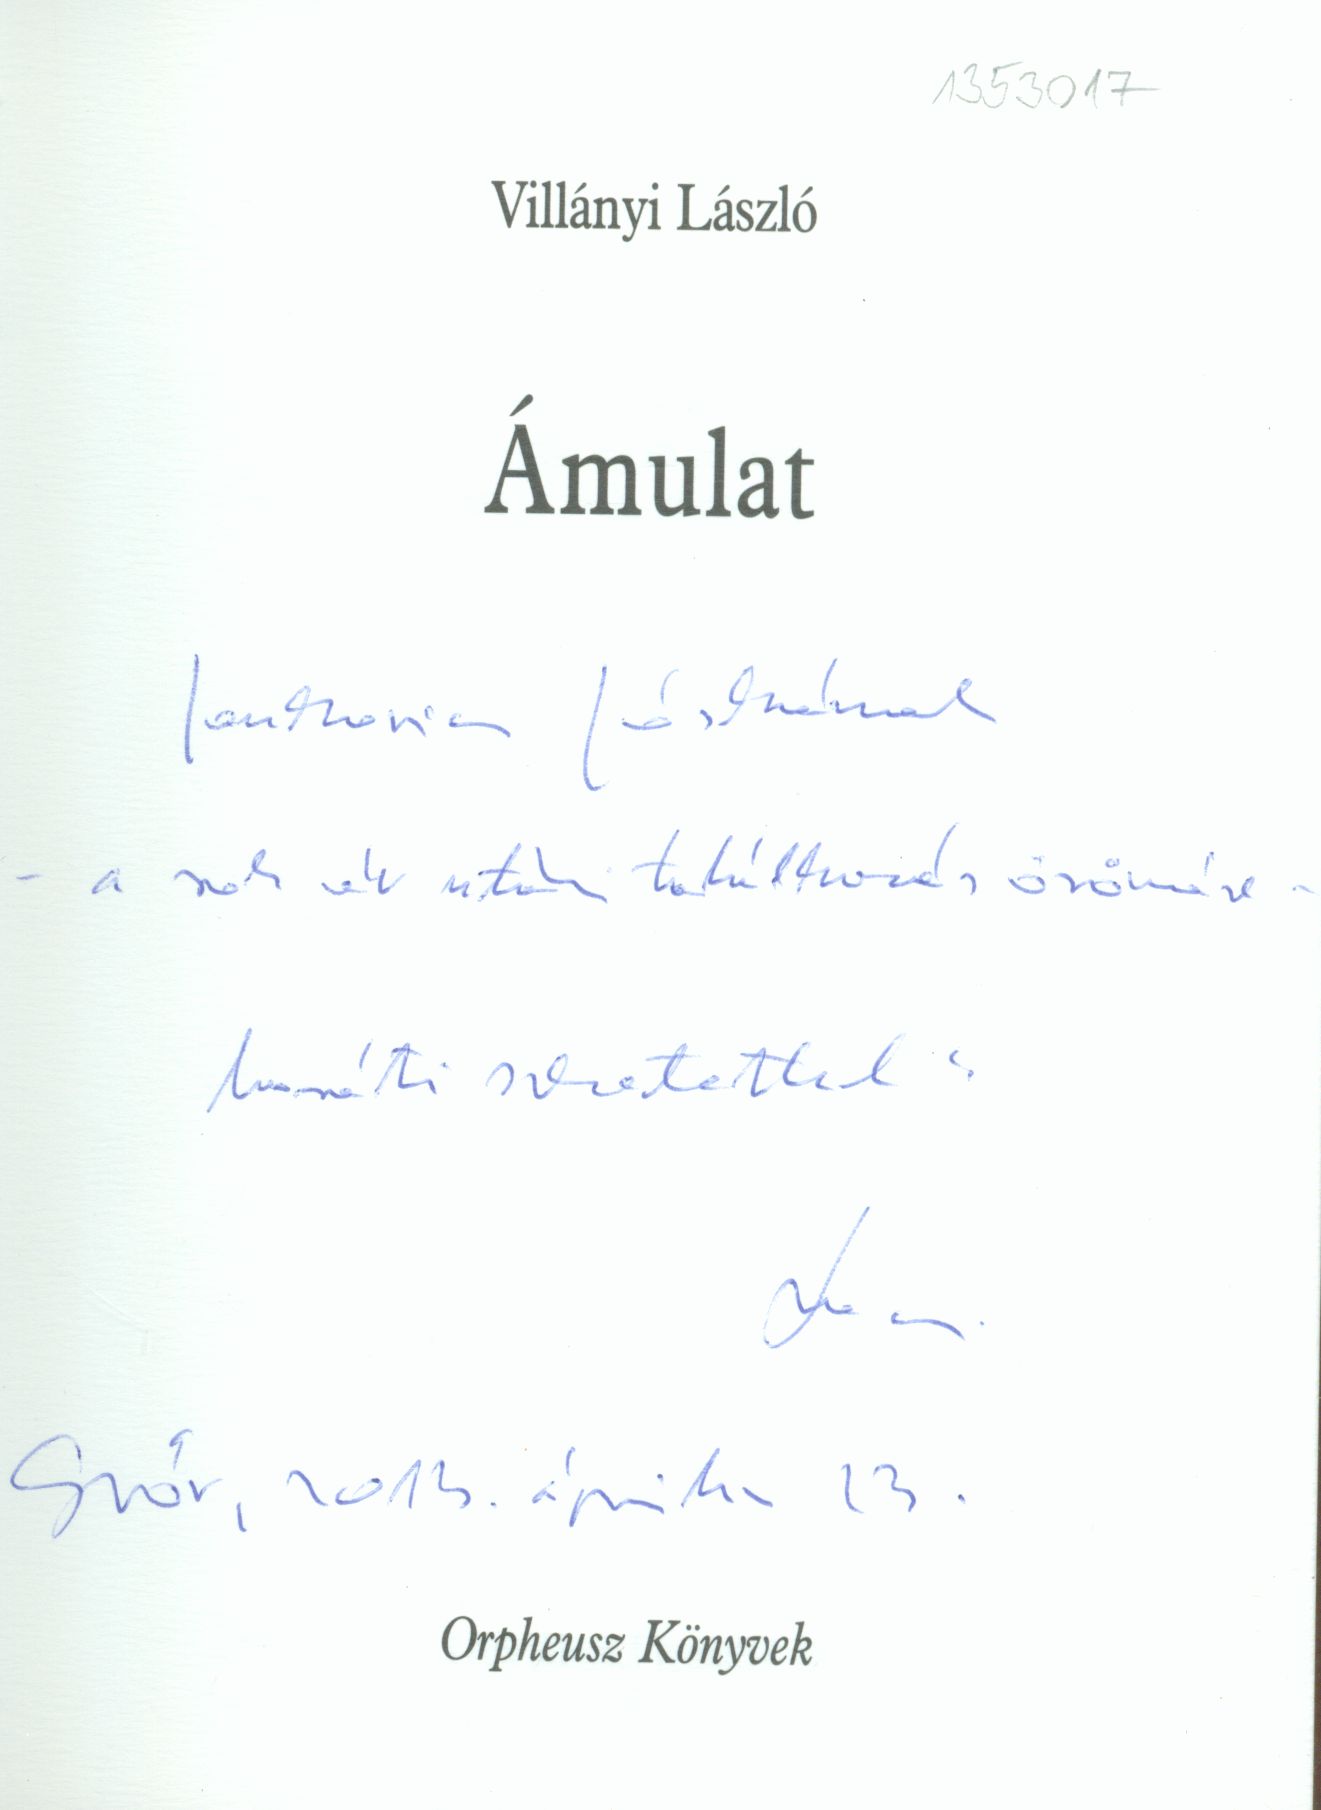 1353017
Villányi László
Ámulat
Jankovics Józsefnek
- a sok év utáni találkozás örömére -
baráti szeretettel:
Győr, 2013. április 23.
Orpheusz Könyvek